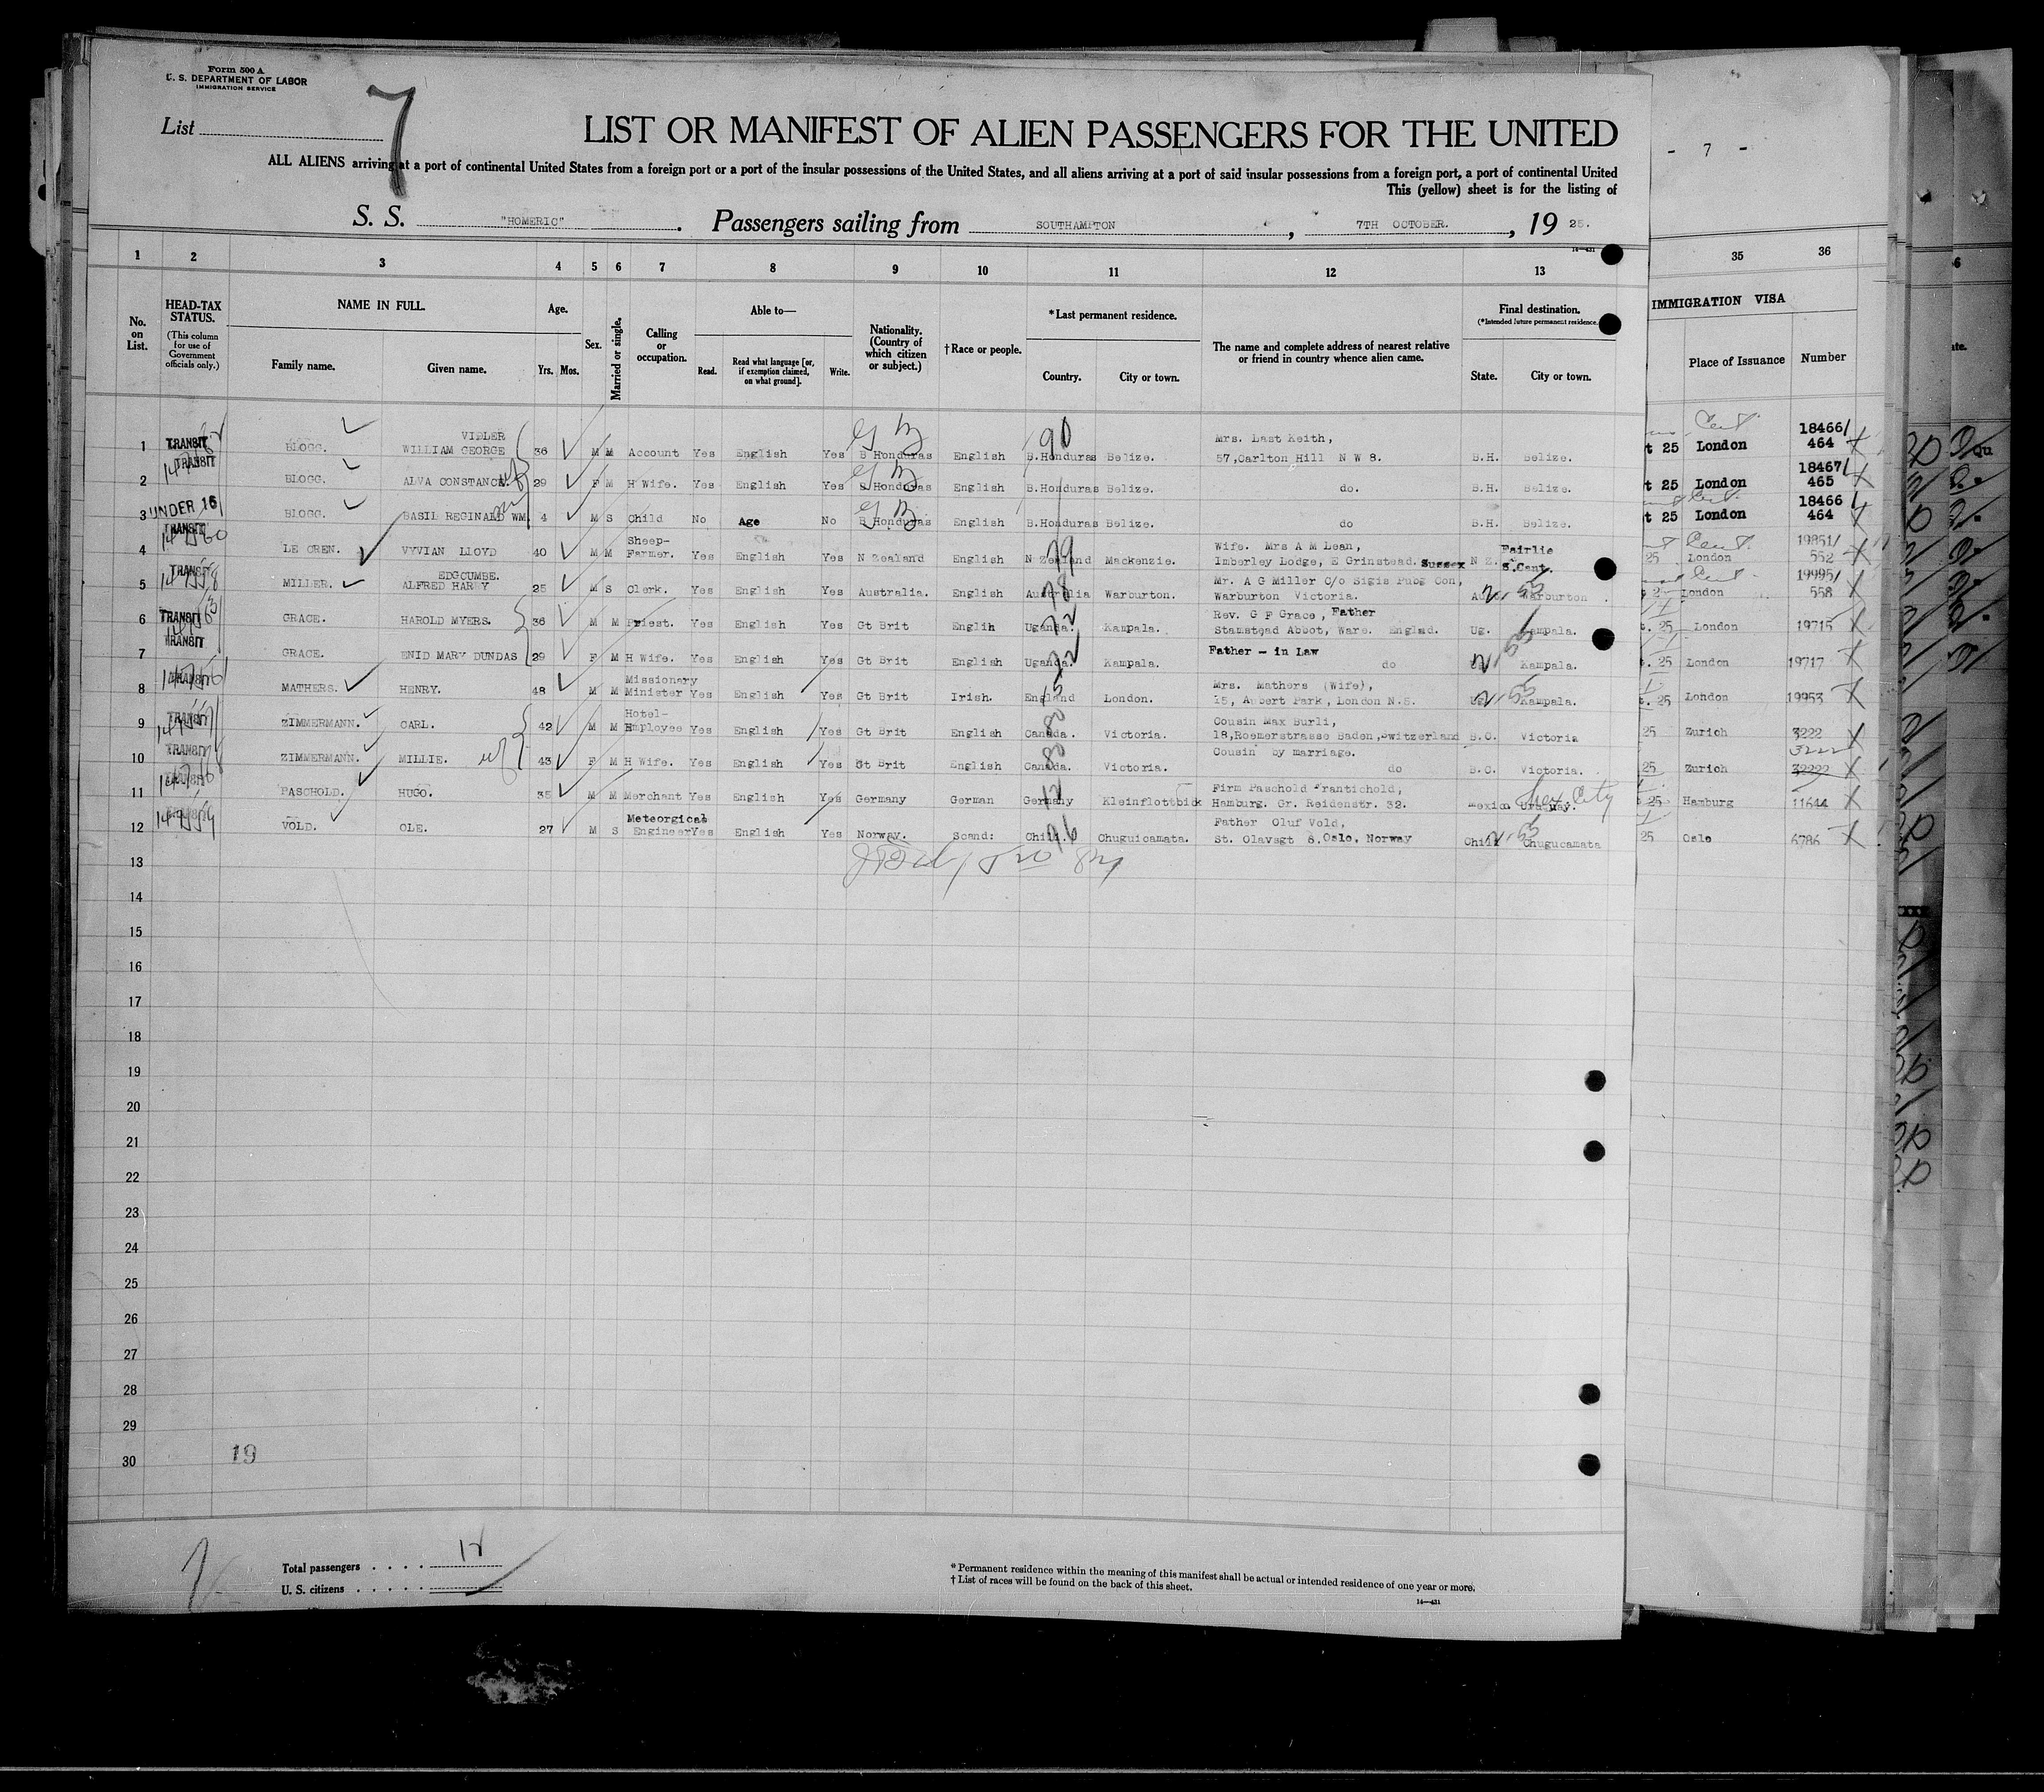 Form 500 A
U. S. DEPARTMENT OF LABOR
IMMIGRATION SERVICE
List
7
LIST OR MANIFEST OF ALIEN PASSENGERS FOR THE UNITED
- 7 -
ALL ALIENS arriving at a port of continental United States from a foreign port or a port of the insular possessions of the United States, and all aliens arriving at a port of said insular possessions from a foreign port, a port of continental United
This (yellow) sheet is for the listing of
S. S. "HOMERIC". Passengers sailing from SOUTHAMPTON, 7TH OCTOBER., 19 25.
14—431
1 2 3 4 5 6 7 8 9 10 11 12 13 35 36
No. on List.
HEAD-TAX STATUS.
(This column for use of Government officials only.)
NAME IN FULL.
Family name. Given name.
Age.
Yrs. Mos.
Sex.
Married or single.
Calling or occupation.
Able to—
Read. Read what language [or, if exemption claimed, on what ground]. Write.
Nationality. (Country of which citizen or subject.)
†Race or people.
*Last permanent residence.
Country. City or town.
The name and complete address of nearest relative or friend in country whence alien came.
Final destination.
(*Intended future permanent residence.)
State. City or town.
IMMIGRATION VISA
Place of Issuance Number
VIDLER
1 TRANSIT BLOGG. WILLIAM GEORGE 36 M M Account Yes English Yes B Honduras English B.Honduras Belize. Mrs. Last Keith, 57,Carlton Hill N W 8. B.H. Belize. t 25 London 18466/ 464
90
2 TRANSIT BLOGG. ALVA CONSTANCE. 29 F M H Wife. Yes English Yes B Honduras English B.Honduras Belize. do. B.H. Belize. t 25 London 18467/ 465
3 UNDER 16 BLOGG. BASIL REGINALD WM. 4 M S Child No Age No B Honduras English B.Honduras Belize. do B.H. Belize. t 25 London 18466 464
4 TRANSIT LE CREN. VYVIAN LLOYD 40 M M Sheep- Farmer. Yes English Yes N Zealand English N Zealand Mackenzie. Wife. Mrs A M Lean, Imberley Lodge, E Grinstead. Sussex N Z. Fairlie S.Cent. 25 London 19851/ 552
79
EDGCUMBE.
5 TRANSIT MILLER. ALFRED HARRY 25 M S Clerk. Yes English Yes Australia. English Australia Warburton. Mr. A G Miller C/o Sigis Pubg Con, Warburton Victoria. Warburton 25 London 19995/ 558
78
6 TRANSIT GRACE. HAROLD MYERS. 36 M M Priest. Yes English Yes Gt Brit Englih Uganda. Kampala. Rev. G F Grace, Father Stamstead Abbot, Ware. Englnd. Ug. Kampala. t. 25 London 19715
72
7 TRANSIT GRACE. ENID MARY DUNDAS 29 F M H Wife. Yes English Yes Gt Brit English Uganda. Kampala. Father - in Law do Kampala. t. 25 London 19717
72
8 TRANSIT MATHERS. HENRY. 48 M M Missionary Minister Yes English Yes Gt Brit Irish. England London. Mrs. Mathers (Wife), 15, Aubert Park, London N.5. Kampala. t. 25 London 19953
9 TRANSIT ZIMMERMANN. CARL. 42 M M Hotel- Employee Yes English Yes Gt Brit English Canada. Victoria. Cousin Max Burli, 18,Roemerstrasse Baden,Switzerland B.C. Victoria 25 Zurich 3222
80
10 TRANSIT ZIMMERMANN. MILLIE. 43 F M H Wife. Yes English Yes Gt Brit English Canada. Victoria. Cousin by marriage. do B.C. Victoria. 25 Zurich 3222 32222
80
11 PASCHOLD. HUGO. 35 M M Merchant Yes English Yes Germany German Germany Kleinflottbick Firm Paschold Frantichold, Hamburg. Gr. Reidenstr. 32. Mexico Mex City t 25 Hamburg 11644
12
12 VOLD. OLE. 27 M S Meteorgical Engineer Yes English Yes Norway. Scand: Chili. Chuguicamata. Father Oluf Vold, St. Olavsgt 8. Oslo, Norway Chili Chugucamata 25 Oslo 6786
76
13
14
15
16
17
18
19
20
21
22
23
24
25
26
27
28
29
30
19
Total passengers . . . . 12
U. S. citizens . . . . .
* Permanent residence within the meaning of this manifest shall be actual or intended residence of one year or more.
† List of races will be found on the back of this sheet.
14—431